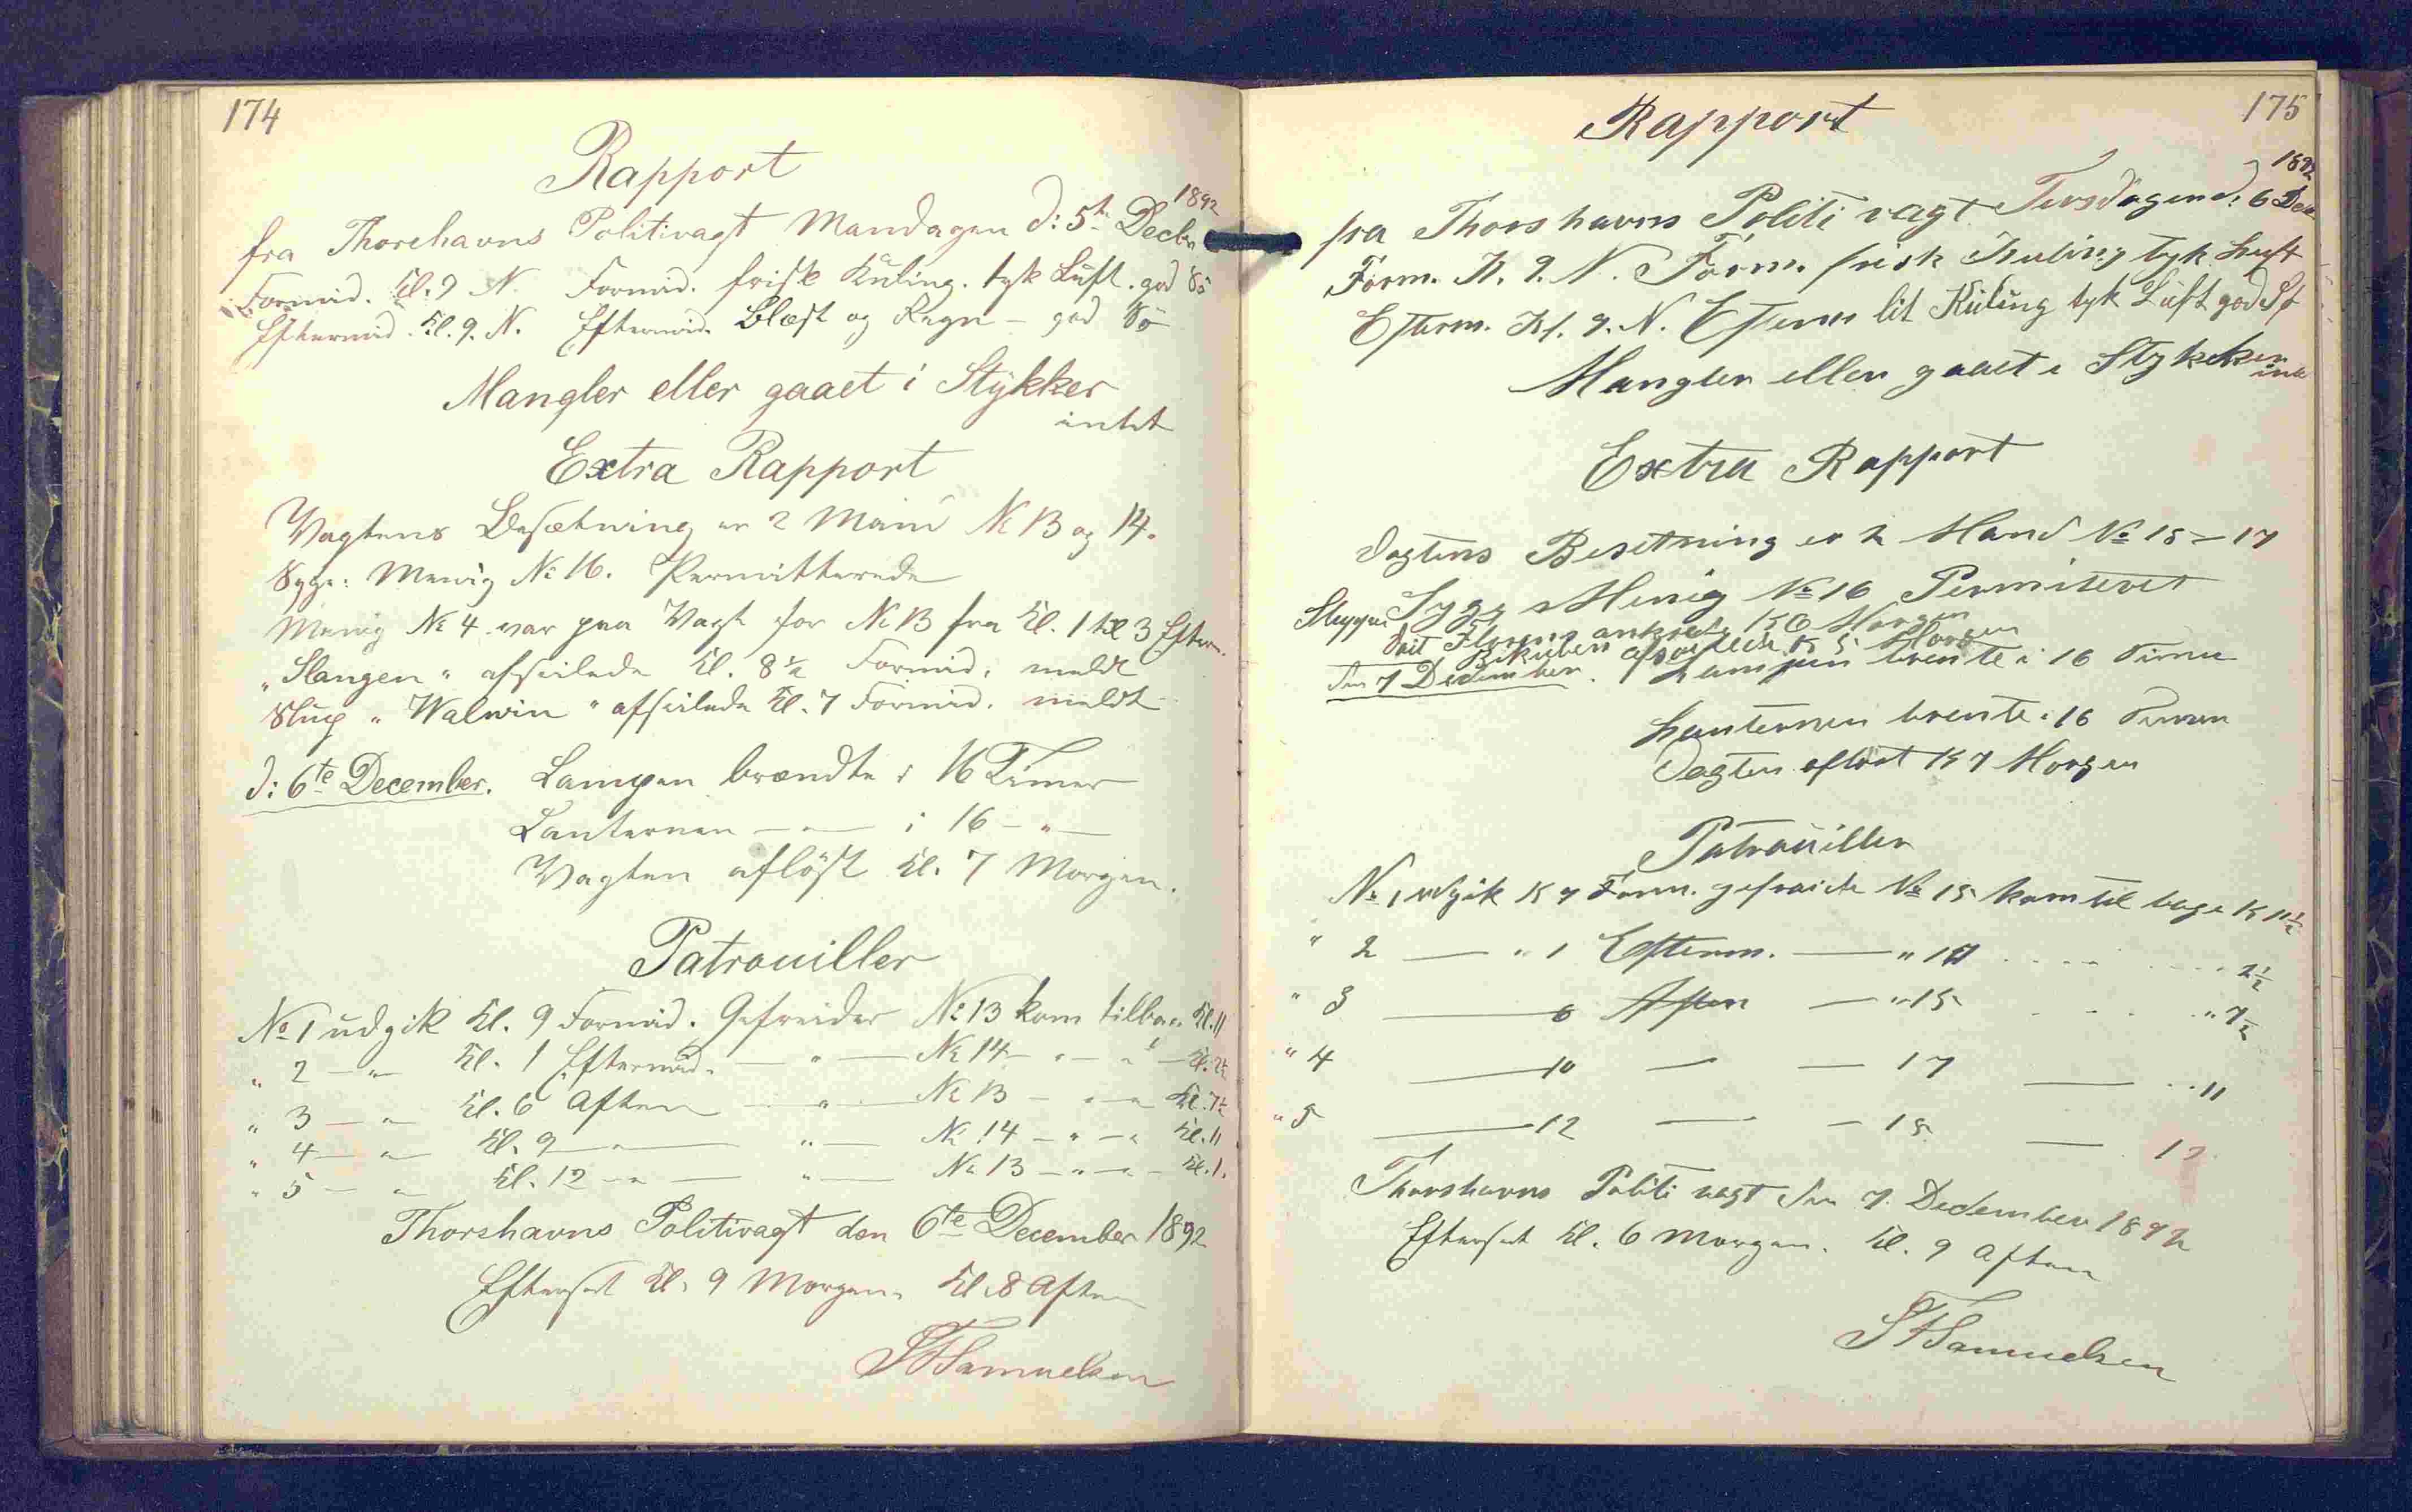 174
Rapport
fra Thorshavns Politivagt Mandagen d: 5te Decbr 1892
Formid. Kl. 9 N. Formid. frisk Kuling. tyk Luft. god Sö
Eftermid. Kl. 9. N. Eftermid. Blæst og Regn — god Sö
Mangler eller gaaet i Stykker
intet
Extra Rapport
Vagtens Besætning er 2 Mand No 13 og 14.
Syge: Menig No 16. Permitterede
Menig No 4 var paa Vagt for No 13 fra Kl. 1 til 3 Efterm.
„Slangen" afseilede Kl. 8½ Formid. meldt
Slup „Walwin" afseilede Kl. 7 Formid. meldt
d: 6te December. Lampen brændte i 16 Timer
Lanternen — " — i 16 — " —
Vagten aflöst Kl. 7 Morgen.
Patrouiller
No 1 udgik Kl. 9 Formid. Gefreider No 13 kom tilbage Kl. 11
" 2 — " Kl. 1 Eftermid. — " — No 14 — " — " — Kl. 2½
" 3 — " Kl. 6 Aften — " — No 13 — " — " Kl. 7½
" 4 — " Kl. 9 — " — " — No 14 — " — " Kl. 11
" 5 — " Kl. 12 — " — " — No 13 — " — " — Kl. 1.
Thorshavns Politivagt den 6te December 1892
Efterset Kl. 9 Morgen. Kl. 8 Aften
Samuelsen
175
Rapport
fra Thorshavns Politi vagt Tirsdagen d: 6 Dec 1892
Form. K. 9. N. Form. frisk Kuling tyk Luft
Efterm. Kl. 9. N. Efterm lit Kuling tyk Luft god Sö
Mangler eller gaaet i Stykker
Extra Rapport
Vagtens Besetning er 2 Mand No 15 – 17
Syge Menig No 16 Permiteret
Sluppen
ankrede K 6 Morgen
afseilede K 5 Morgen
den 7 Dedember. Lampen brente i 16 Timer
Lanternen brente i 16 Timer
Vagten aflöst K 7 Morgen
Patrouiller
No 1 udgik K 9 Form. gefraide No 15 kom til bage K 11½
" 2 — " 1 Efterm. — " 17 2½
" 3 — 6 Aften — " 15 " 7½
" 4 — 10 — — 17 — " 11
" 5 — 12 — — 15 —
Thorshavns Politi vagt den 7. Dedember 1892
Efterset Kl. 6 Morgen. Kl. 9 Aften
Samuelsen